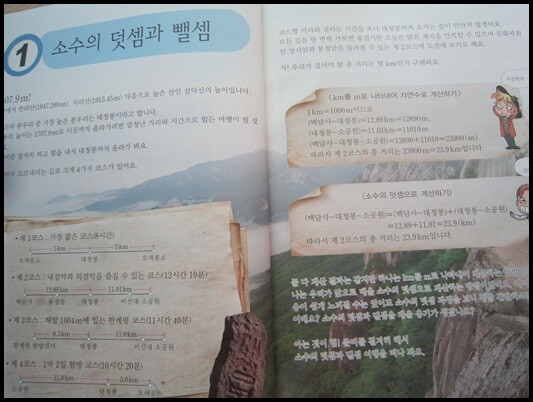 1 소수의 덧셈과 뺄셈
07.9m!
한라산(1947.269m), 지리산(1915.45m) 다음으로 높은 산인 설악산의 높이입니다.
봉우리 중 가장 높은 봉우리는 대청봉이라고 합니다.
높이는 1707.9m로 이곳까지 올라가려면 엄청난 거리와 시간으로 힘든 여행이 될 것
를 철저히 하고 힘을 내서 대청봉까지 올라가 봐요.
오르내리는 길로 크게 4가지 코스가 있어요.
• 제 1코스 : 가장 짧은 코스(8시간)
5km 5km
오색분소 대청봉 오색분소
• 제 2코스 : 내설악과 외설악을 즐길 수 있는 코스(12시간 10분)
12.89km 11.01km
백담사 봉정암 대청봉 비선대 소공원
• 제 3코스 : 해발 1004m에 있는 한계령 코스(11시간 40분)
8.3km 11.0km
한계령 탐방센터 대청봉 비선대 소공원
• 제 4코스 : 1박 2일 탐방 코스(10시간 20분)
11.0km 5.0km
소공원 대청봉
코스별 거리와 걸리는 시간을 보니 대청봉까지 오가는 길이 만만치 않겠어요.
모든 길을 한 번씩 가보면 좋겠지만 오늘은 맑은 계곡을 만끽할 수 있으며 문화자원
인 영시암과 봉정암을 둘러볼 수 있는 제 2코스에 도전해 보기로 해요.
자! 우리가 걸어야 할 총 거리는 몇 km인지 구해봐요.
〈km를 m로 나타내어 자연수로 계산하기〉
1km=1000m이므로
(백담사~대청봉)=12.89km=12890m,
(대청봉~소공원)=11.01km=11010m
(백담사~대청봉~소공원)=12890+11010=23900(m)
따라서 제 2코스의 총 거리는 23900m=23.9km입니다.
〈소수의 덧셈으로 계산하기〉
(백담사~대청봉~소공원)=(백담사~대청봉)+(대청봉~소공원)
=12.89+11.01=23.9(km)
따라서 제 2코스의 총 거리는 23.9km입니다.
둘 다 계산 결과는 같지만 하나는 km를 m로 나타내어 계산하는
소수의 덧셈과 뺄셈 여행을 떠나 봐요.